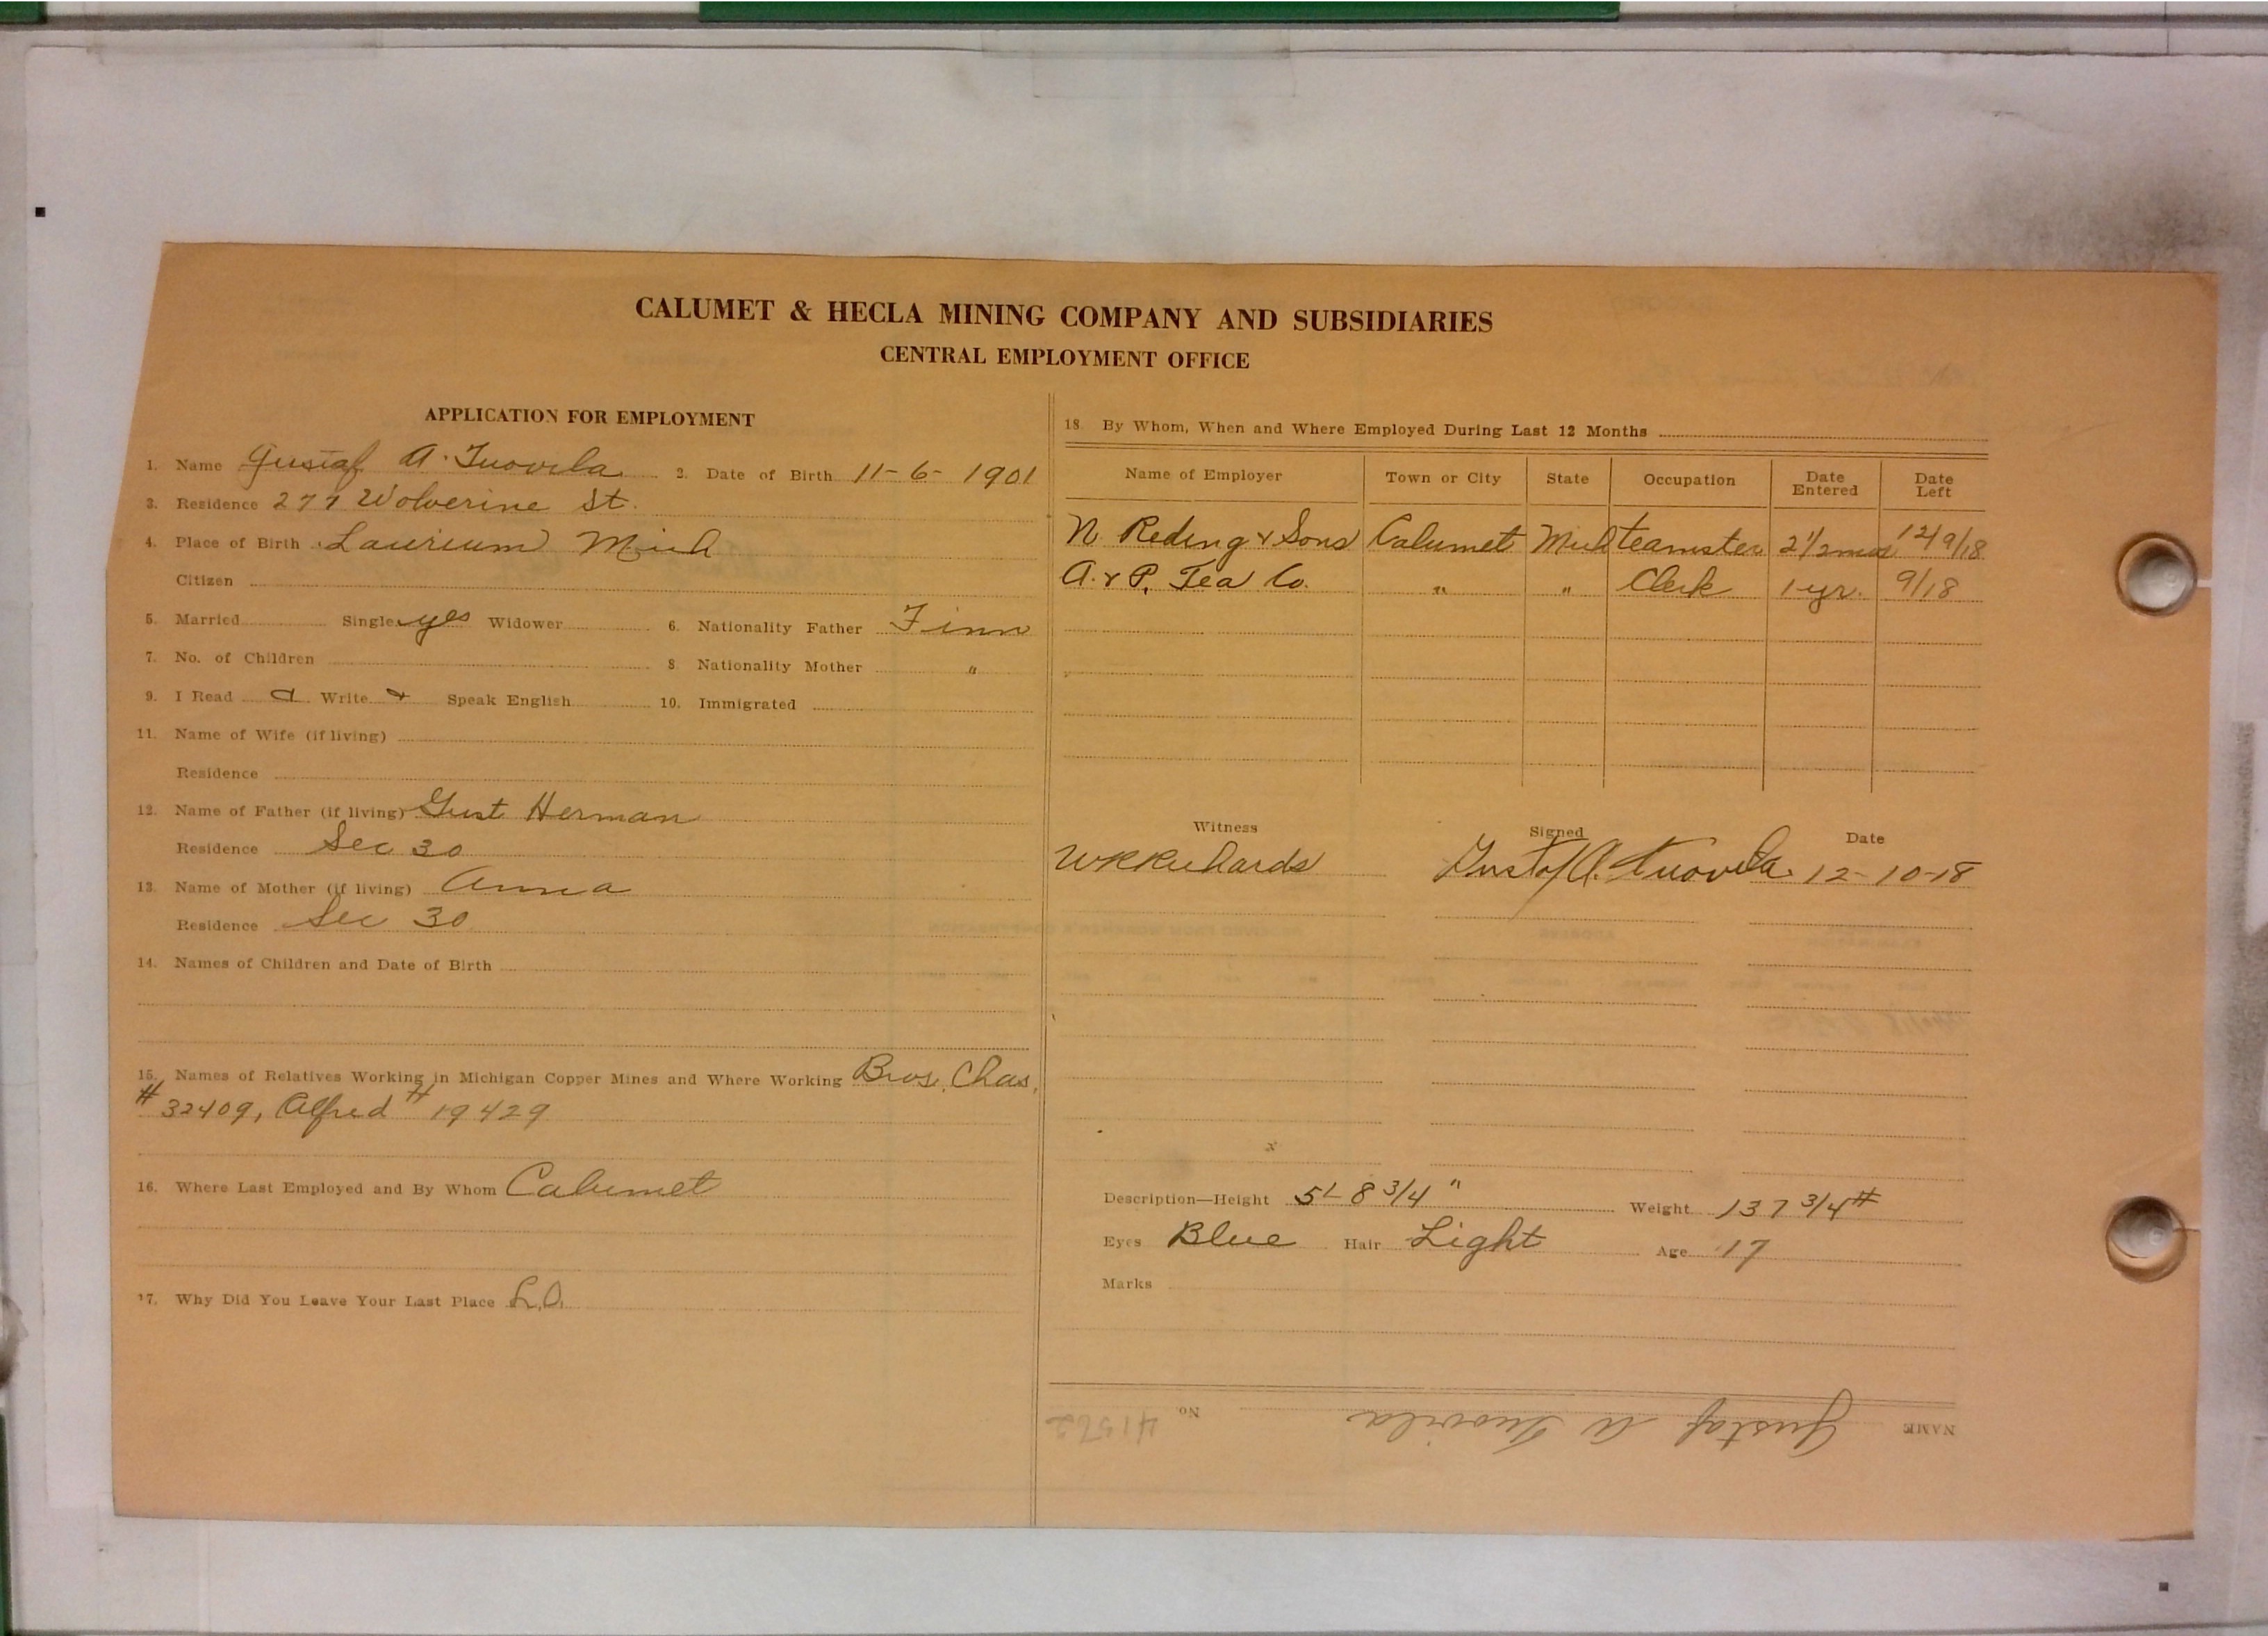 CALUMET & HECLA MINING COMPANY AND SUBSIDIARIES
CENTRAL EMPLOYMENT OFFICE
APPLICATION FOR EMPLOYMENT
1. Name Gustaf A. Tuovila 2. Date of Birth 11-6-1901
3. Residence 277 Wolverine St.
4. Place of Birth Laurium Mich
Citizen
5. Married Single yes Widower 6. Nationality Father Finn
7. No. of Children 8. Nationality Mother "
9. I Read Write Speak English 10. Immigrated
11. Name of Wife (if living)
Residence
12. Name of Father (if living) Gust Herman
Residence Sec 30
13. Name of Mother (if living) Anna
Residence Sec 30
14. Names of Children and Date of Birth
15. Names of Relatives Working in Michigan Copper Mines and Where Working Bros. Chas.
# 32409, Alfred # 19429
16. Where Last Employed and By Whom Calumet
17. Why Did You Leave Your Last Place L.O.
18. By Whom, When and Where Employed During Last 12 Months
Name of Employer Town or City State Occupation Date Entered Date Left
N Reding & Sons Calumet Mich teamster 2 1/2 mos 12/9/18
A. & P. Tea Co. " " Clerk 1 yr. 9/18
Witness Signed Date
WKRichards Gustaf A. Tuovila. 12-10-18
Description—Height 5'-8 3/4" Weight 137 3/4#
Eyes Blue Hair Light Age 17
Marks
NAME Gustaf A Tuovila No. 41562